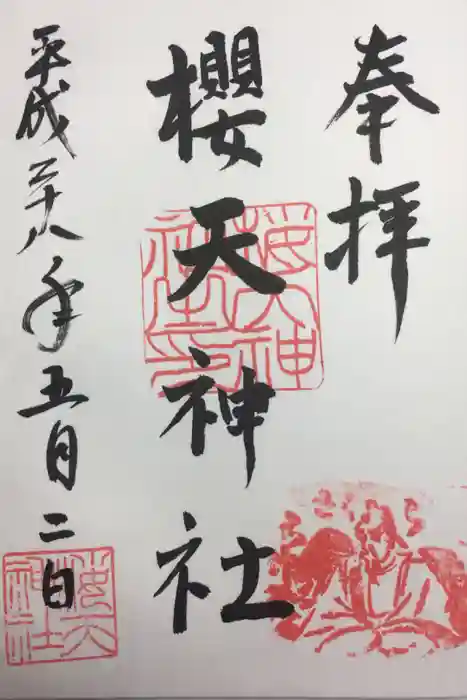 奉拝
櫻天神社
平成二十八年五月二日
桜天神
社之印
桜天
神社